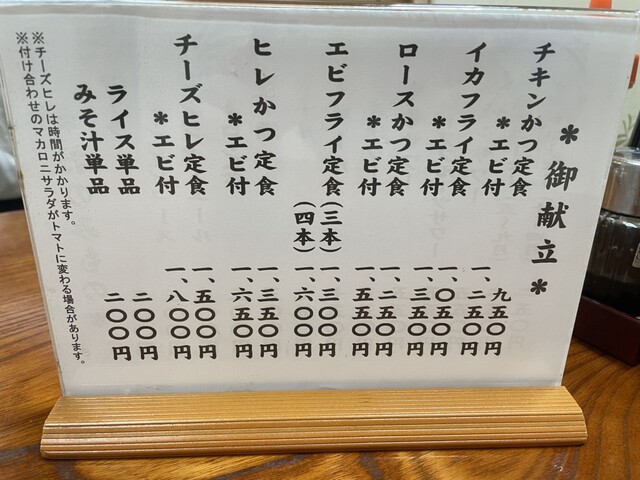 ＊御献立＊
チキンかつ定食 九五〇円
＊エビ付 一、二五〇円
イカフライ定食 一、〇五〇円
＊エビ付 一、三五〇円
ロースかつ定食 一、二五〇円
＊エビ付 一、五五〇円
エビフライ定食(三本) 一、三〇〇円
(四本) 一、六〇〇円
ヒレかつ定食 一、三五〇円
＊エビ付 一、六五〇円
チーズヒレ定食 一、五〇〇円
＊エビ付 一、八〇〇円
ライス単品 二〇〇円
みそ汁単品 二〇〇円
※チーズヒレは時間がかかります。
※付け合わせのマカロニサラダがトマトに変わる場合があります。